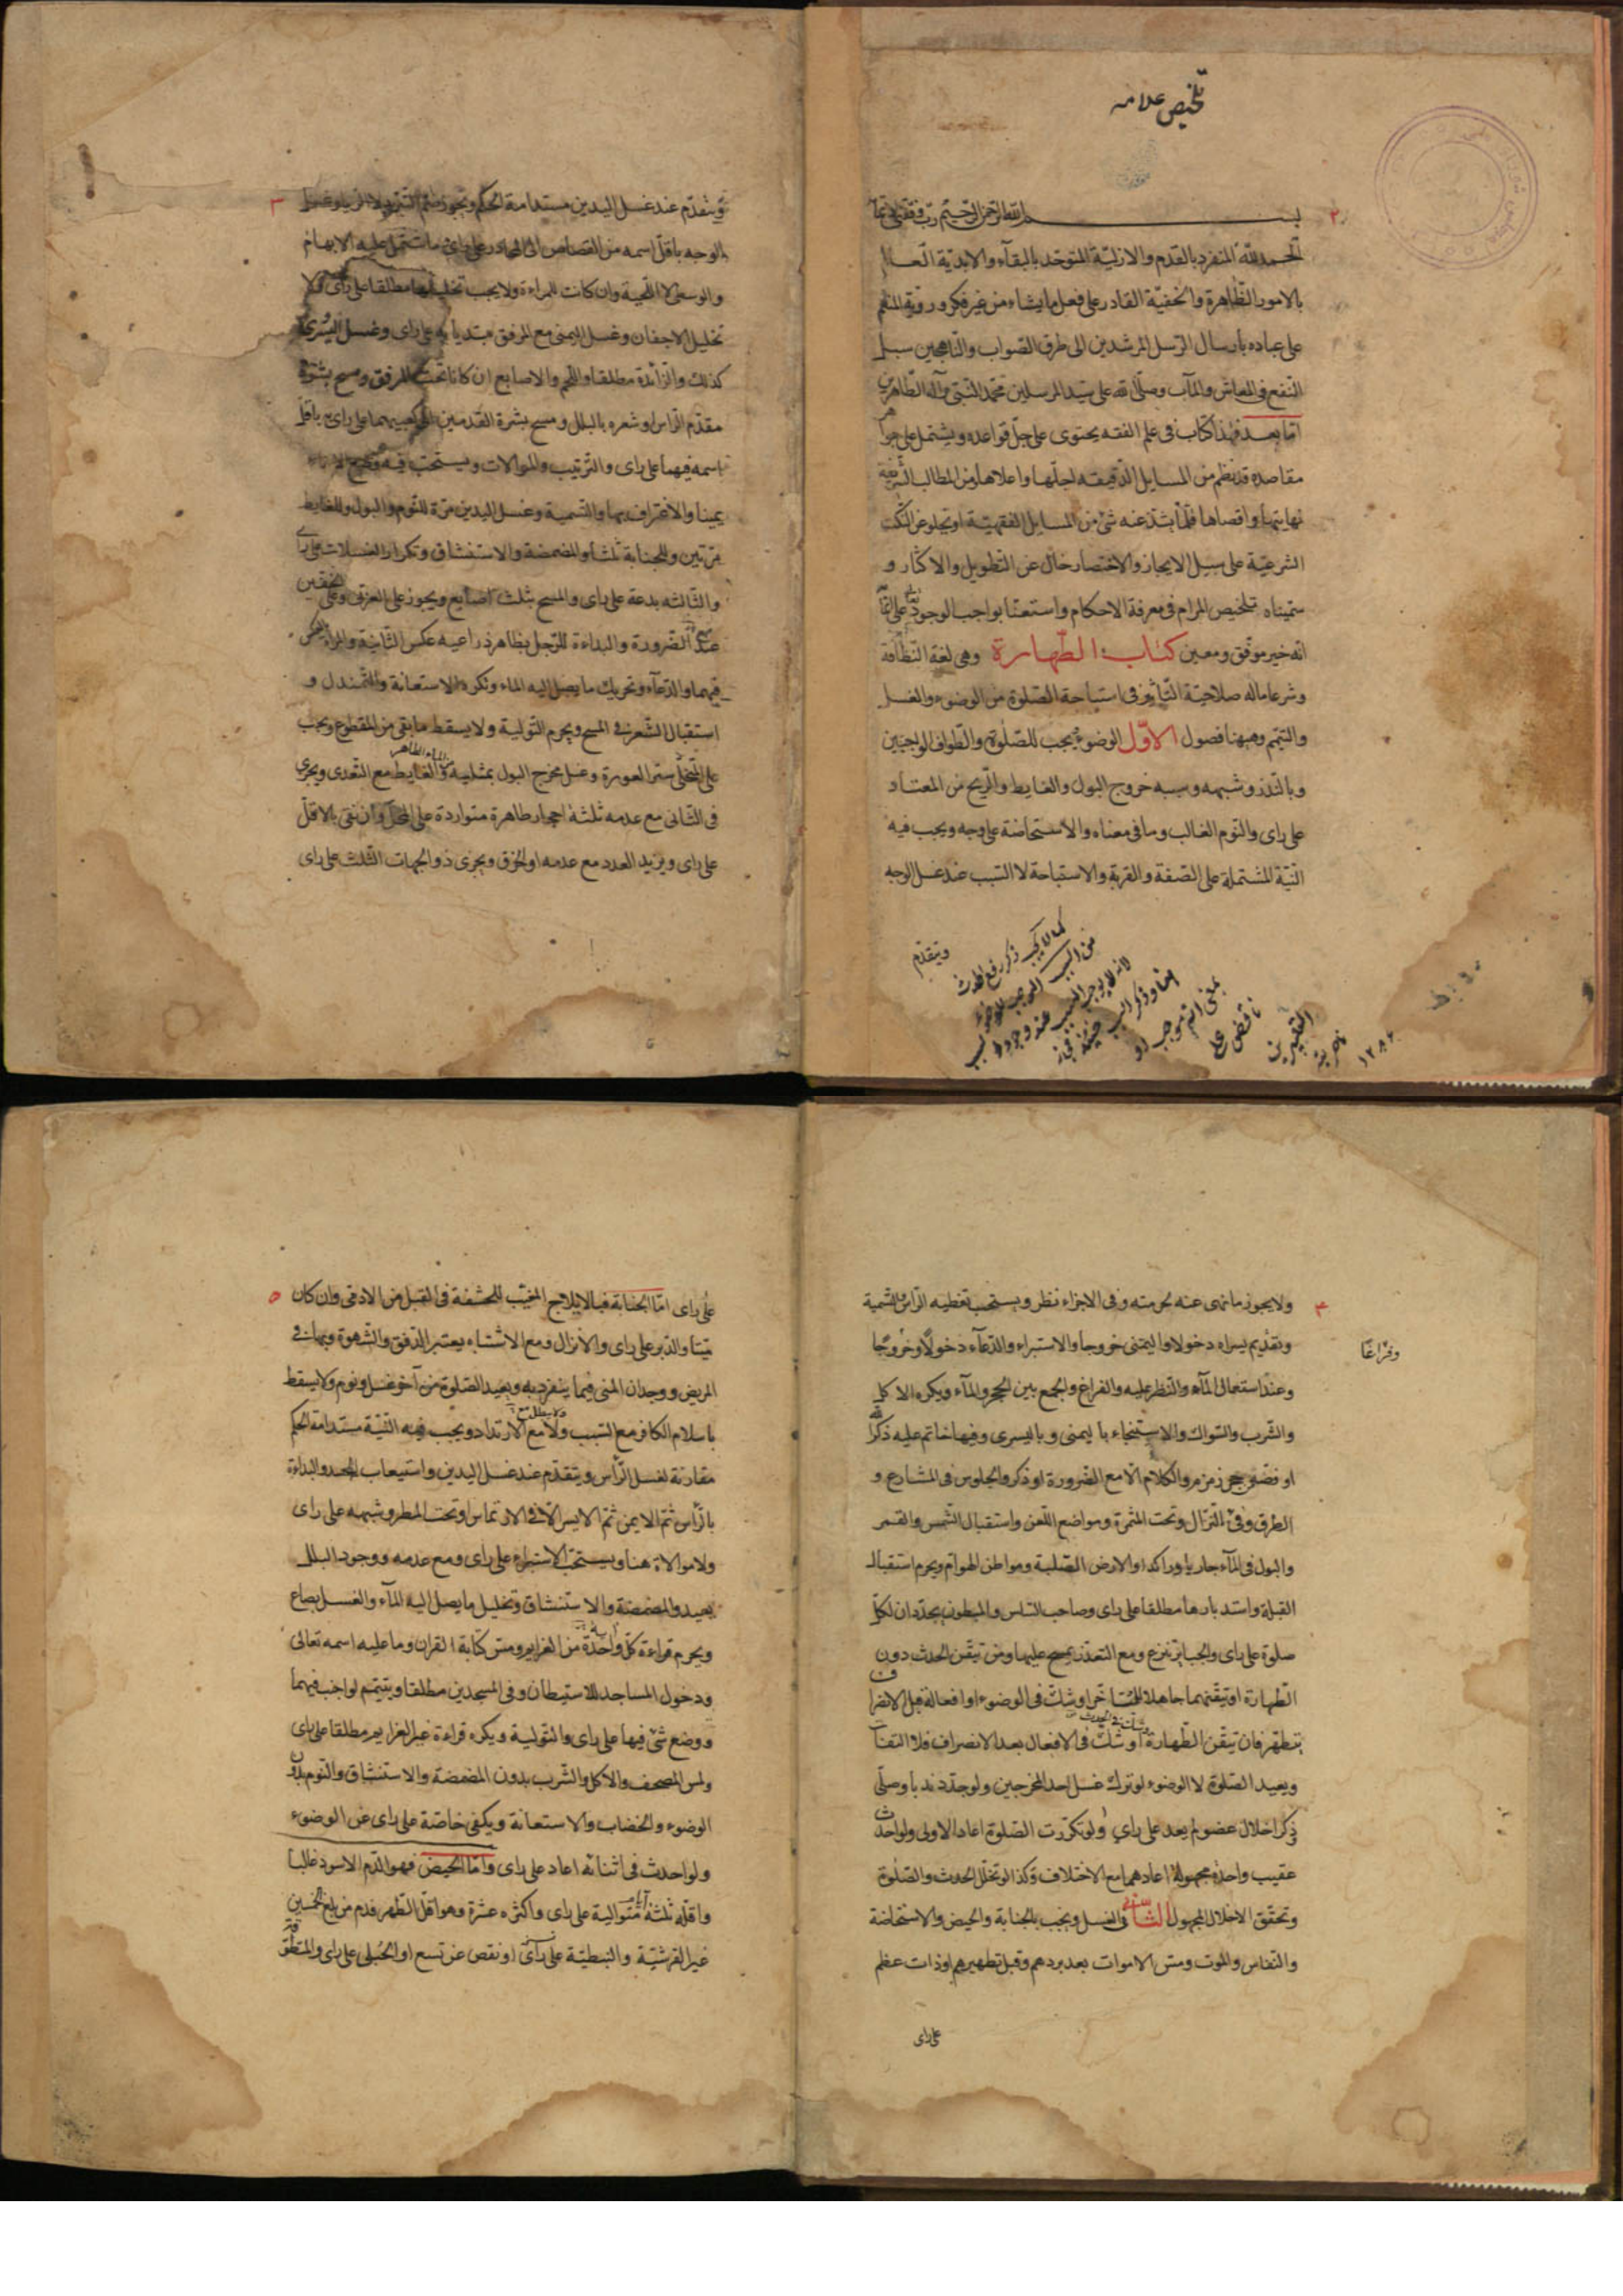 تلخيص علامه
٢
بسم الله الرحمن الرحيم رب وفقني
الحمد لله المتفرد بالقدم والازليّة المتوحّد بالبقآء والابديّة العالم
بالامور الظاهرة والخفيّة القادر على فعل ما يشاء من غير فكر ورويّة المنعم
على عباده بأرسال الرّسل المرشدين الى طرق الصّواب والنّاهجين سبل
النّفع فى المعاش والمآب وصلّى الله على سيّد المرسلين محمّد النّبىّ وآله الطّاهرين
امّا بعد فهذا كتاب فى علم الفقه يحتوى على جلّ قواعده ويشتمل على جواهر
مقاصده قد نظم من المسايل الدّقيقه اجلّها واعلاها ومن المطالب الشّريفة
نهايتها واقصاها فلمّا يشذّ عنه شئ من المسايل الفقهيّة او يخلو عن النّكت
الشرعيّة على سبيل الايجاز والاختصار خال عن التّطويل والاكثار و
سمّيناه تلخيص المرام فى معرفة الاحكام واستعنّا بواجب الوجود
انّه خير موفّق ومعين كتاب الطّهارة وهى لغة النّظافة
وشرعا ماله صلاحيّة التّاثير فى استباحة الصّلوة من الوضوء والغسل
والتيمّم وههنا فصول الاوّل الوضوء يجب للصّلوة والطّواف الواجبين
وبالنّذر وشبهه وسببه خروج البول والغايط والرّيح من المعتاد
على راى والنّوم الغالب وما فى معناه والاستحاضة على وجه ويجب فيه
النّيّة المشتملة على الصّفة والقربة والاستباحة لا السّبب عند غسل الوجه
ويتقدّم
١٢٨٢
٣
ويتقدّم عند غسل اليدين مستدامة الحكم ويجوز ضمّ التّبرّد لا الرّيا وغسل
الوجه باقلّ اسمه من القصاص الى المحادر على راى ما اشتمل عليه الابهام
والوسطى لا اللّحية وان كانت للمراءة ولا يجب تخليلها مطلقا على راى ولا
تخليل الاجفان وغسل اليمنى مع المرفق مبتديا به على راى وغسل اليسرى
كذلك والزّائدة مطلقا واللّحم والاصابع ان كانا تحت المرفق ومسح بشرة
مقدّم الرّاس او شعره بالبلل ومسح بشرة القدمين الى كعبيهما على راى باقلّ
اسمه فيهما على راى والتّرتيب والموالات ويستحبّ فيه وضع الاناء
يمينا والاغتراف بها والتّسمية وغسل اليدين مرّة للنّوم والبول وللغايط
مرّتين وللجنابة ثلثا والمضمضة والاستنشاق وتكرار الغسلات على راى
والثّالثه بدعة على راى والمسح بثلث اصابع ويجوز على العرق وعلى الخفّين
عند الضّرورة والبداءة للرّجل بظاهر ذراعيه عكس الثّانية والمراءة بالعكس
فيهما والدّعآء وتحريك ما يصل اليه الماء ونكره الاستعانة والتّمندل و
استقبال الشّعر فى المسح ويحرم التّولية ولا يسقط ما بقى من المقطوع ويجب
على المتخلّى ستر العورة وغسل مخرج البول بمثليه والغايط مع التّعدى ويجزى
فى الثّانى مع عدمه ثلثة احجار طاهرة متواردة على المحلّ وان نقى بالاقلّ
على راى ويزيد العدد مع عدمه او الخرق ويجزى ذو الجهات الثّلث على راى
٤
ولا يجوز ما نهى عنه لحرمته وفى الاجزاء نظر ويستحب تغطيه الرّاس والتّسمية
وتقديم يسراه دخولا واليمنى خروجا والاستبراء والدّعآء دخولاً وخروجًا
وفراغًا
وعند استعمال المآء والنّظر عليه والفراغ والجمع بين الحجر والمآء ويكره الاكل
والشّرب والسّواك والاستنجاء باليمنى وباليسرى وفيها خاتم عليه ذكر الله
او فصّ من حجر زمزم والكلام الّا مع الضّرورة او ذكر والجلوس فى المشارع و
الطرق وفئ النّزال وتحت المثمرة ومواضع اللّعن واستقبال الشّمس والقمر
والبول فى المآء جاريا وراكدا والارض الصّلبة ومواطن الهوامّ ويحرم استقبال
القبلة واستدبارها مطلقا على راى وصاحب السّلس والمبطون يجدّدان لكلّ
صلوة على راى والجبائر تنزع ومع التعذر يمسح عليها ومن تيقّن الحدث دون
الطّهارة او تيقّنهما جاهلا للمتاخّر او شكّ فى الوضوء او افعاله قبل الانصراف
يتطهّر فان تيقّن الطّهارة او شكّ فى الافعال بعد الانصراف فلا التفات
ويعيد الصّلوة لا الوضوء لو ترك غسل احد المخرجين ولو جدّد ندبا وصلّى
ذكر اخلال عضو لم يعد على راي ولو تكرّرت الصّلوة اعاد الاولى ولو احدث
عقيب واحدة مجهولة اعادهما مع الاختلاف وكذا لو تخلّل الحدث والصّلوة
وتحقّق الاخلال المجهول الثّانى فى الغسل ويجب بالجنابة والحيض والاستحاضة
والنّفاس والموت ومسّ الاموات بعد بردهم وقبل تطهيرهم او ذات عظم
على راى
٥
على راى امّا الجنابة فبالايلاج المغيّب للحشفة فى القبل من الادمى وان كان
ميّتا والدّبر على راى والانزال ومع الاشتباه يعتبر الدّفق والشّهوة وبها فى
المريض ووجدان المنى فيما ينفرد به ويعيد الصّلوة من آخر غسل ونوم ولا يسقط
باسلام الكافر مع السّبب ولا مع الارتداد ويجب فيه النّيّة مستدامة الحكم
مقارنة لغسل الرّأس ويتقدّم عند غسل اليدين واستيعاب الجسد والبداءة
بالرّأس ثمّ الايمن ثمّ الايسر الّا فى الارتماس او تحت المطر وشبهه على راى
ولا موالاة هنا ويستحبّ الاستبراء على راى ومع عدمه ووجود البلل
يعيد والمضمضة والاستنشاق وتخليل ما يصل اليه المآء والغسل بصاع
ويحرم قراءة كلّ واحدة من العزايم ومس كتابة القران وما عليه اسمه تعالى
ودخول المساجد للاستيطان وفى المسجدين مطلقا ويتيمّم لواجب فيهما
ووضع شئ فيها على راى والتّولية ويكره قراءة غير العزايم مطلقا على راى
ولمس المصحف والاكل والشّرب بدون المضمضة والاستنشاق والنّوم بدون
الوضوء والخضاب والاستعانة ويكفى خاصّة على راى عن الوضوء
ولو احدث فى اثنائه اعاد على راى وامّا الحيض فهو الدّم الاسود غالبا
واقلّه ثلثة ايام متوالية على راى واكثره عشرة وهو اقلّ الطّهر فدم من بلغ الخمسين
غير القرشيّة والنبطيّة على راى او نقص عن تسع او الحبلى على راى والمتطوّق